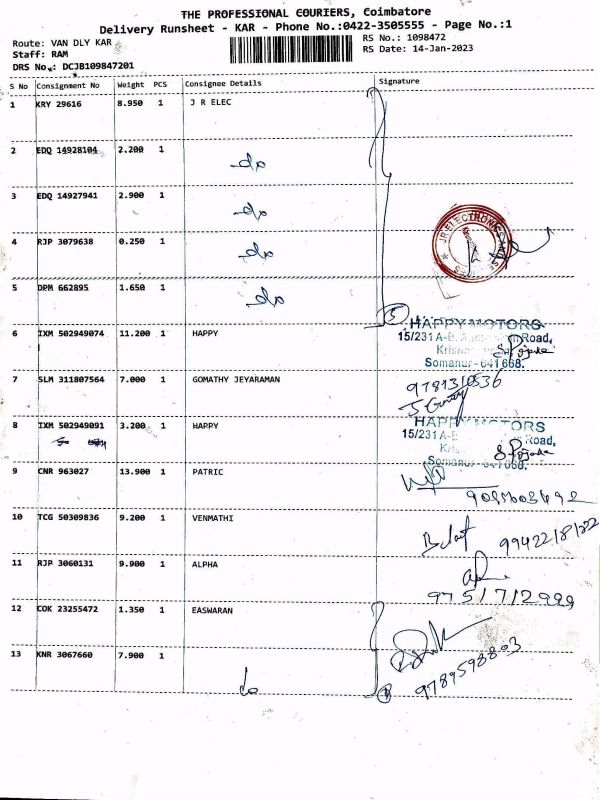 THE PROFESSIONAL COURIERS, Coimbatore
Delivery Runsheet - KAR - Phone No.:0422-3505555 - Page No.:1
Route: VAN DLY KAR
Staff: RAM
DRS No.: DCJB109847201
RS No.: 1098472
RS Date: 14-Jan-2023
S No Consignment No Weight PCS Consignee Details Signature
1 KRY 29616 8.950 1 J R ELEC
2 EDQ 14928104 2.200 1 -do
3 EDQ 14927941 2.900 1 -do
4 RJP 3079638 0.250 1 -do
JR ELECTRONICS
5 DPM 662895 1.650 1 -do
5
6 IXM 502949074 11.200 1 HAPPY
HAPPY MOTORS
15/231 A-B, Road,
Somanur-641668.
S Pooja
7 SLM 311807564 7.000 1 GOMATHY JEYARAMAN
8 IXM 502949091 3.200 1 HAPPY
HAPPY MOTORS
15/231 A-B Road,
Somanur-641668.
S Pooja
9 CNR 963027 13.900 1 PATRIC
10 TCG 50309836 9.200 1 VENMATHI
11 RJP 3060131 9.900 1 ALPHA
9751712999
12 COK 23255472 1.350 1 EASWARAN
13 KNR 3067660 7.900 1 do
9789598803